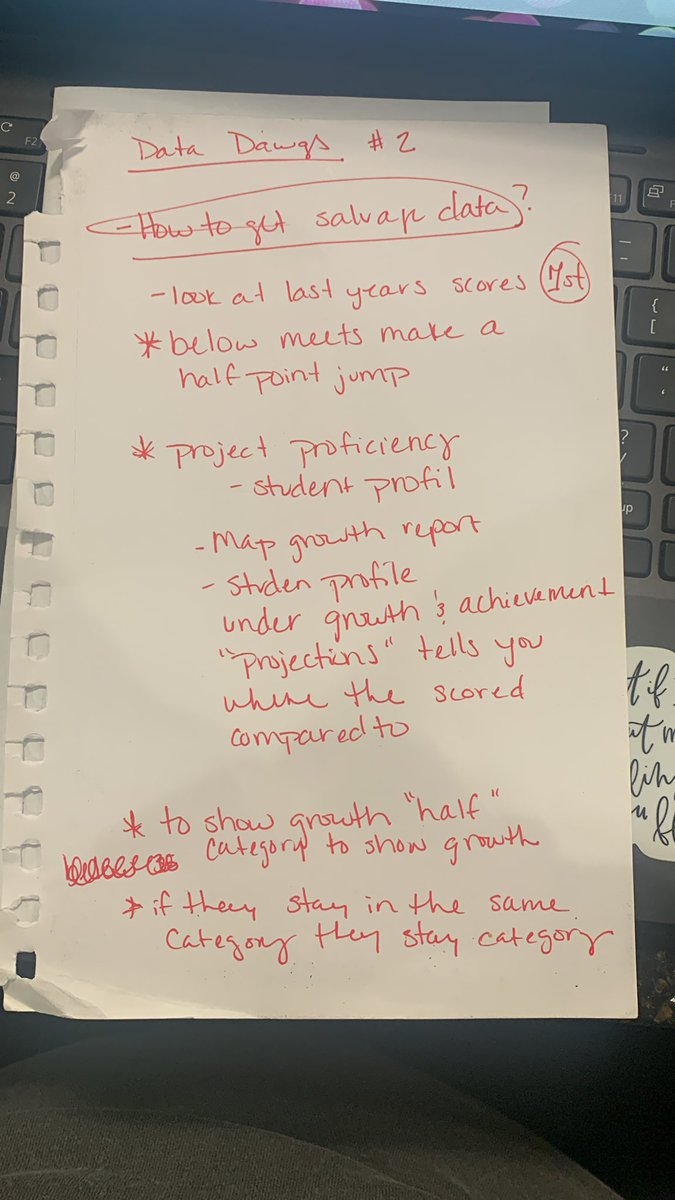 Data Dawgs #2
- How to get salvage data?
- look at last years scores 1st
* below meets make a
half point jump
* project proficiency
- student profil
- Map growth report
- studen profile
under growth & achievement
"projections" tells you
where the scored
compared to
* to show growth "half"
category to show growth
* if theey stay in the same
category they stay category